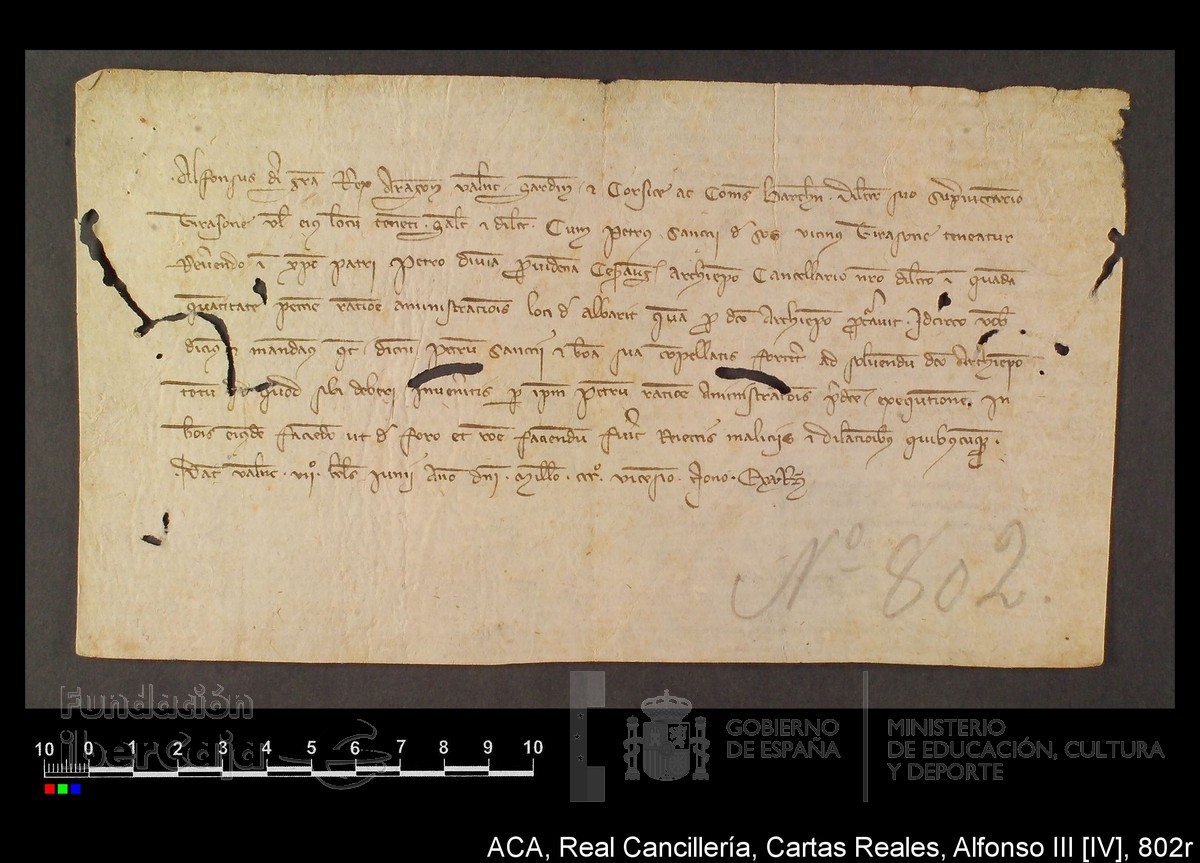 Alfonsus dei gra Rex Aragon Valenc Sardin et Corsice ac Comes Barchn dilcto suo suprajunctario
Tirasone vel eius locum tenenti Salt et dilct. Cum Petrus Sancii de vicinus Tirasone teneatur
Reverendo in xpo patri Petro divina providencia Cesaraug Archiepo Cancellario nro dilcto in quada
quantitate peccunie ratione aministracionis loci d Albarit qua pro dco Archiepo procuravit. Idcirco vob
dicimus mandamus qt dictum Petrum Sancii et bona sua compellatis fortiter ad solvendum dco Archiepo
totum quod sibi deberi inveneritis per ipm Petrum ratione aministracionis pdce exequtionem in
bonis eiusde faciendo ut d foro et racione faciendum fuerit Reiectis maliciis et dilacionibus quibuscumque.
Dat Valenc. VIIº kls Junii Anno dni Millo. CCCº. vicesimo. Nono.
Nº 802.
Fundación
iberCaja
10 0 1 2 3 4 5 6 7 8 9 10
GOBIERNO
DE ESPAÑA
MINISTERIO
DE EDUCACIÓN, CULTURA
Y DEPORTE
ACA, Real Cancillería, Cartas Reales, Alfonso III [IV], 802r